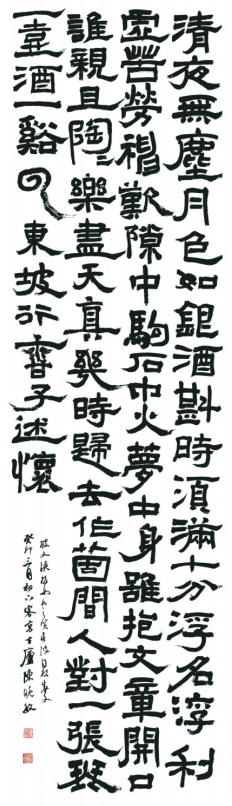 清夜無塵月色如銀酒斟時須滿十分浮名浮利
虛苦勞神歎隙中駒石中火夢中身雖抱文章開口
誰親且陶〻樂盡天真幾時歸去作箇間人對一張琴
一壺酒一谿云東坡行香子述懷
癸卯三月初六